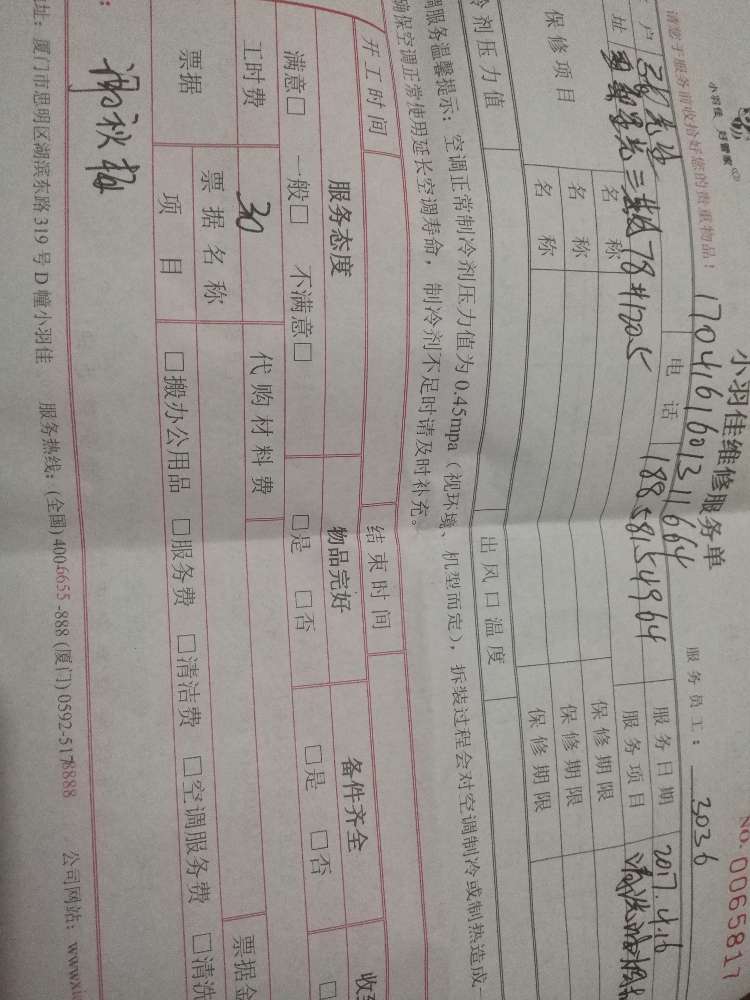 小羽佳 好管家
小羽佳维修服务单
NO. 0065817
17041616013111664
服务员工： 3036
请您于服务前收拾好您的贵重物品！
户
电 话 18858154964
服务日期 2017.4.16
址 三期78#1205
服务项目 清洗
保修项目
名 称
保修期限
名 称
保修期限
名 称
保修期限
冷剂压力值
出风口温度
调服务温馨提示：空调正常制冷剂压力值为0.45mpa（视环境、机型而定），拆装过程会对空调制冷或制热造成一
确保空调正常使用延长空调寿命，制冷剂不足时请及时补充。
开工时间
结束时间
服务态度
物品完好
备件齐全
满意□ 一般□ 不满意□
□是 □否
□是 □否
工时费 30
代购材料费
票据
票据名称
票据金
项 目
□搬办公用品 □服务费 □清洁费 □空调服务费 □清洗
谢秋梅
地址：厦门市思明区湖滨东路319号D幢小羽佳 服务热线：(全国)400-6655-888 (厦门)0592-5178888 公司网站：www.xi